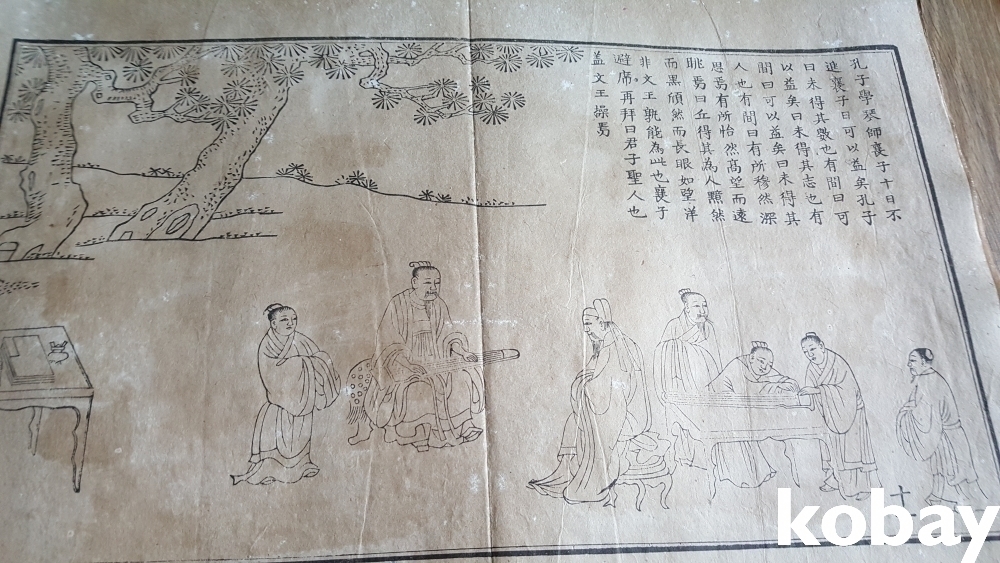 孔子學琴師襄子十日不
進襄子曰可以益矣孔子
曰未得其數也有間曰可
以益矣曰未得其志也有
間曰可以益矣曰未得其
人也有間曰有所穆然深
思焉有所怡然高望而遠
眺焉曰丘得其為人黯然
而黑頎然而長眼如望洋
非文王孰能為此也襄子
避席再拜曰君子聖人也
盖文王操焉
十
kobay